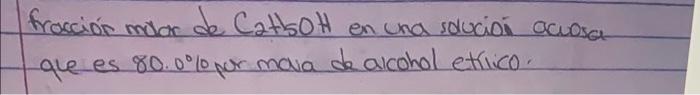 fracción molar de C2H5OH en una solución acuosa
que es 80.0% por masa de alcohol etílico.